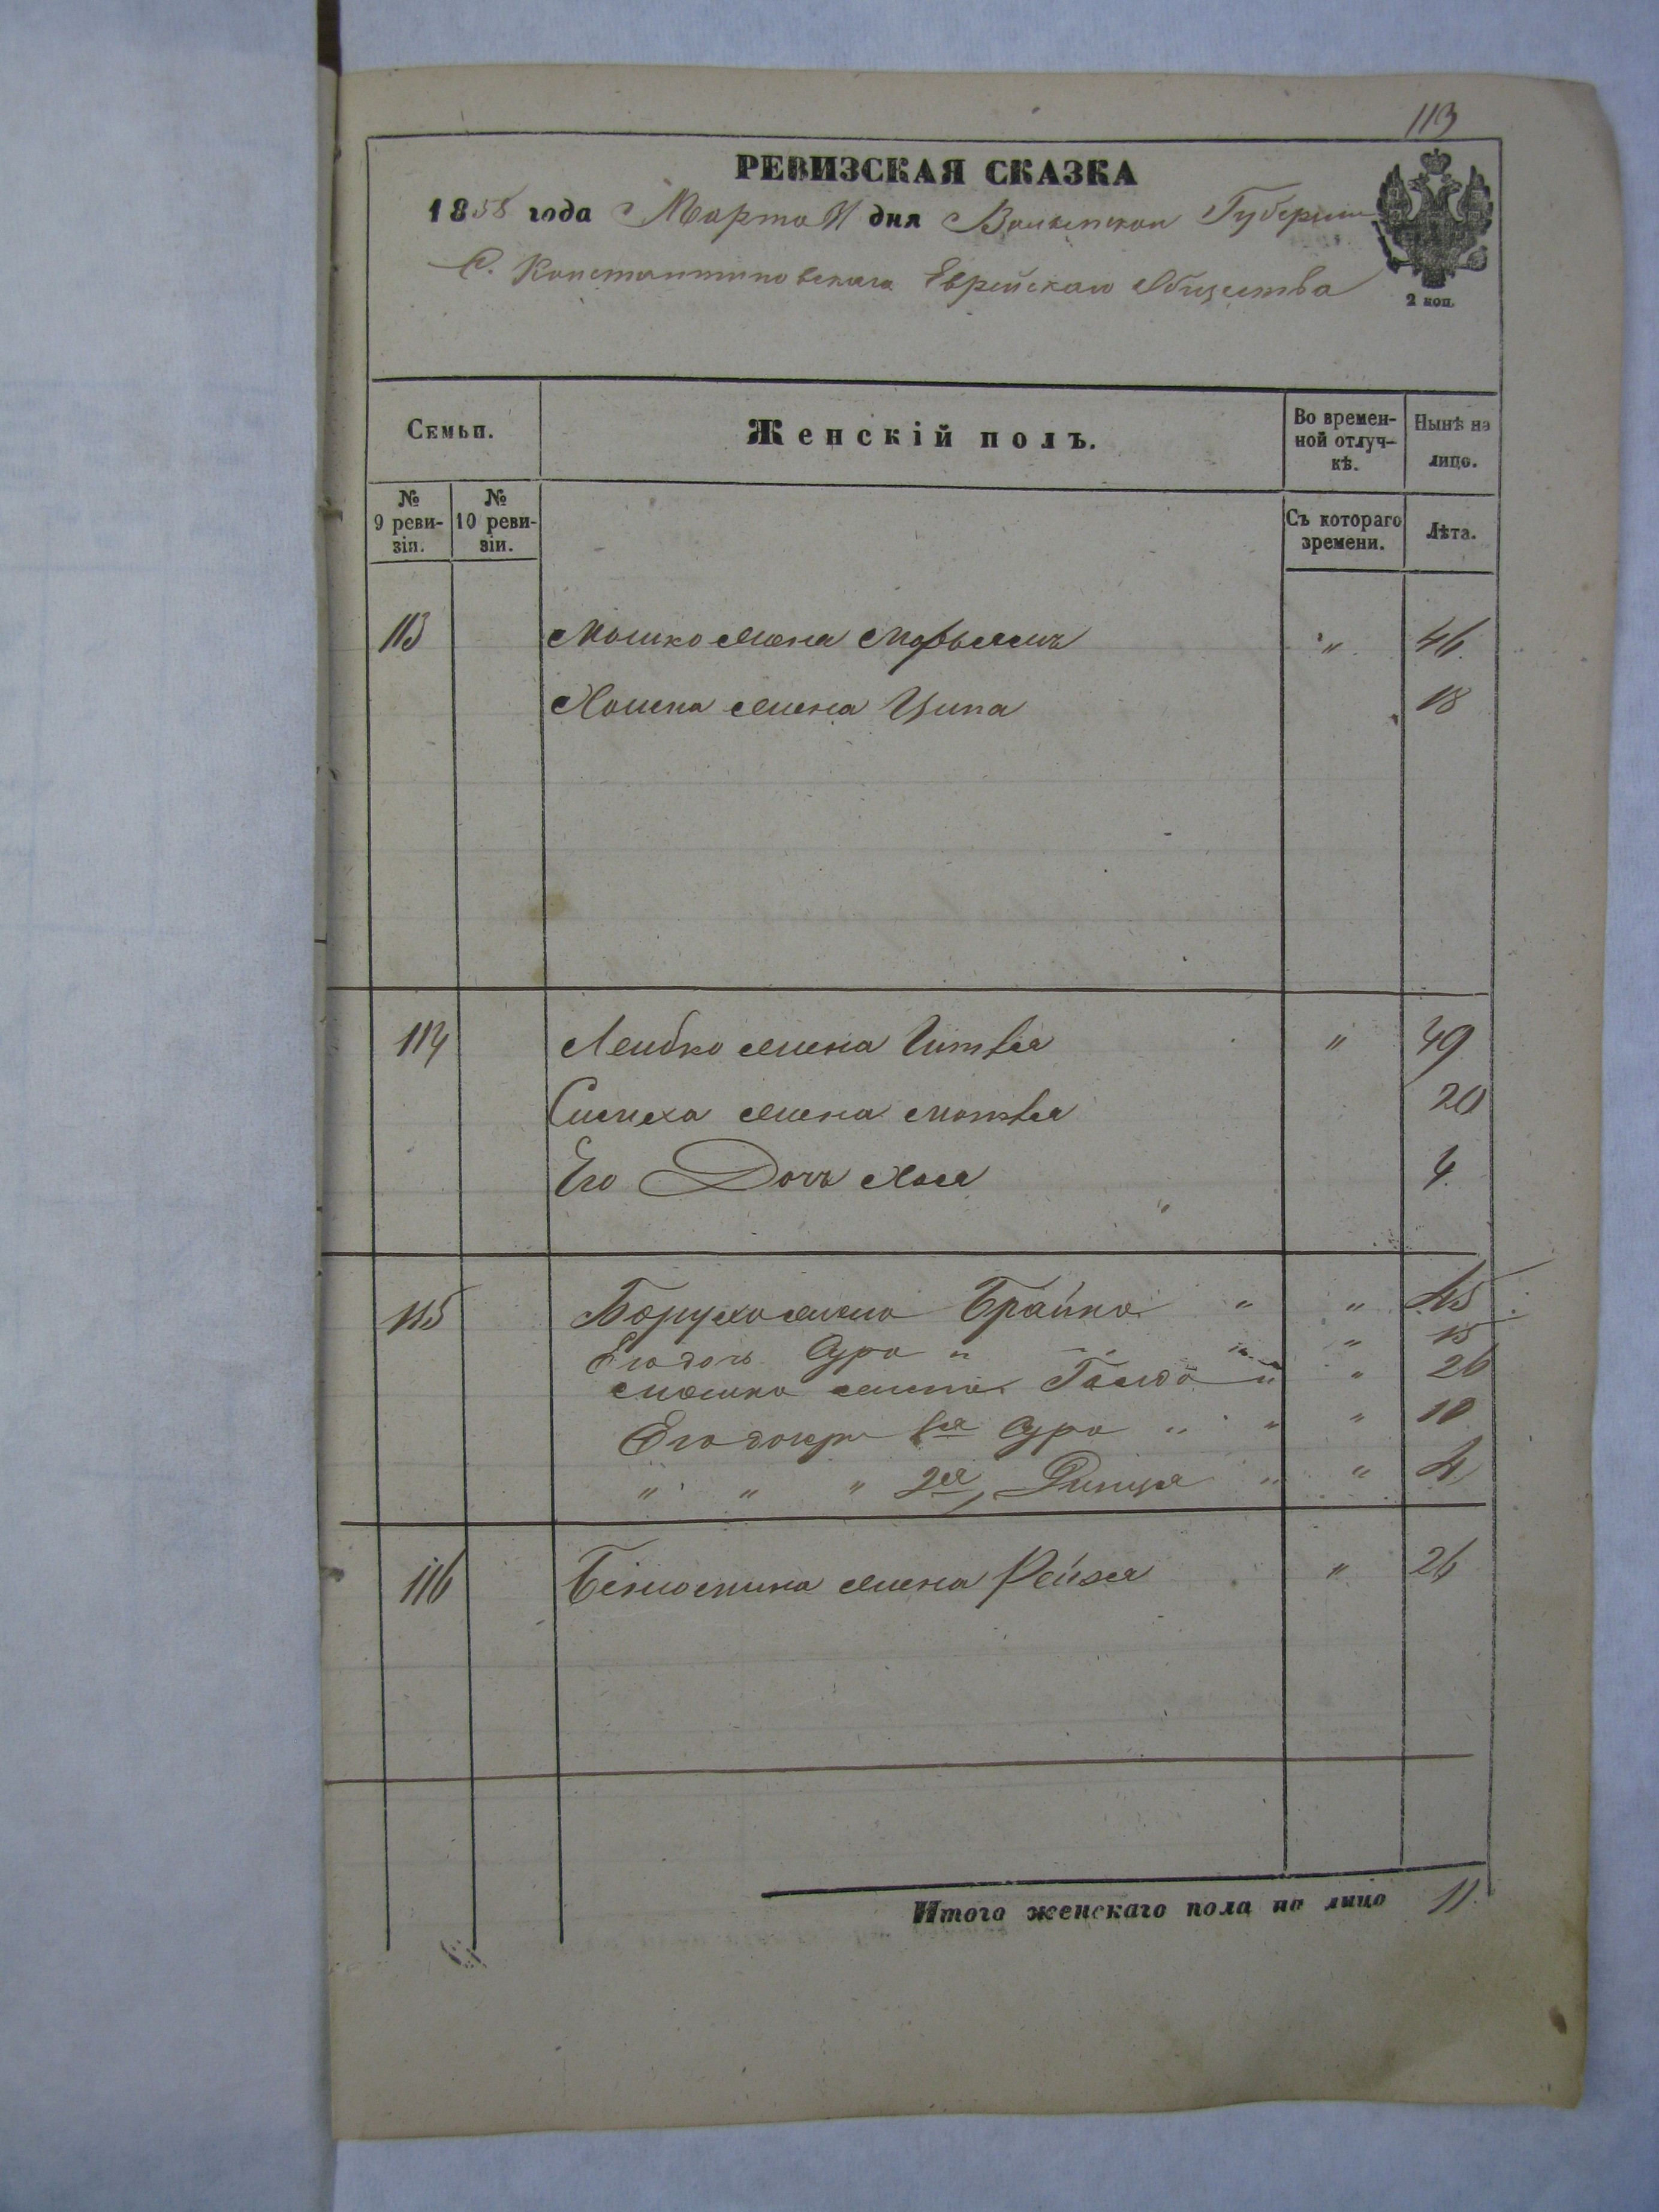 113
РЕВИЗСКАЯ СКАЗКА
1858 года Марта 11 дня Волынской Губернии
С. Константиновскаго Еврейскаго Общества
2 коп.
Семьи.
Женскій полъ.
Во времен-
ной отлуч-
кѣ.
Нынѣ на
лицо.
№
9 реви-
зіи.
№
10 реви-
зіи.
Съ котораго
времени.
Лѣта.
113 Мошко жена " 46
жена Ципа 18
114 Лейбко жена " 49
Симха жена 20
Его Дочь Хая 4
115 Боруха жена Брайна " " 45
Его дочь Сура " " " 15
Мошка жена " " 26
Его дочери 1я Сура " " " 10
" " " 2я " " 4
116 жена Рейзя " 26
Итого женскаго пола на лицо 11